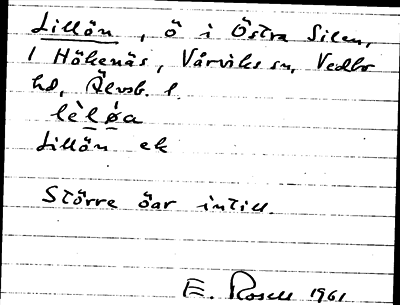 Lillön, ö i Östra Silen,
1 Hökenäs, Vårviks sn, Vedbo
hd, Älvsb. l.
lèløa
Lillön ek
Större öar intill.
E. Rosell 1961